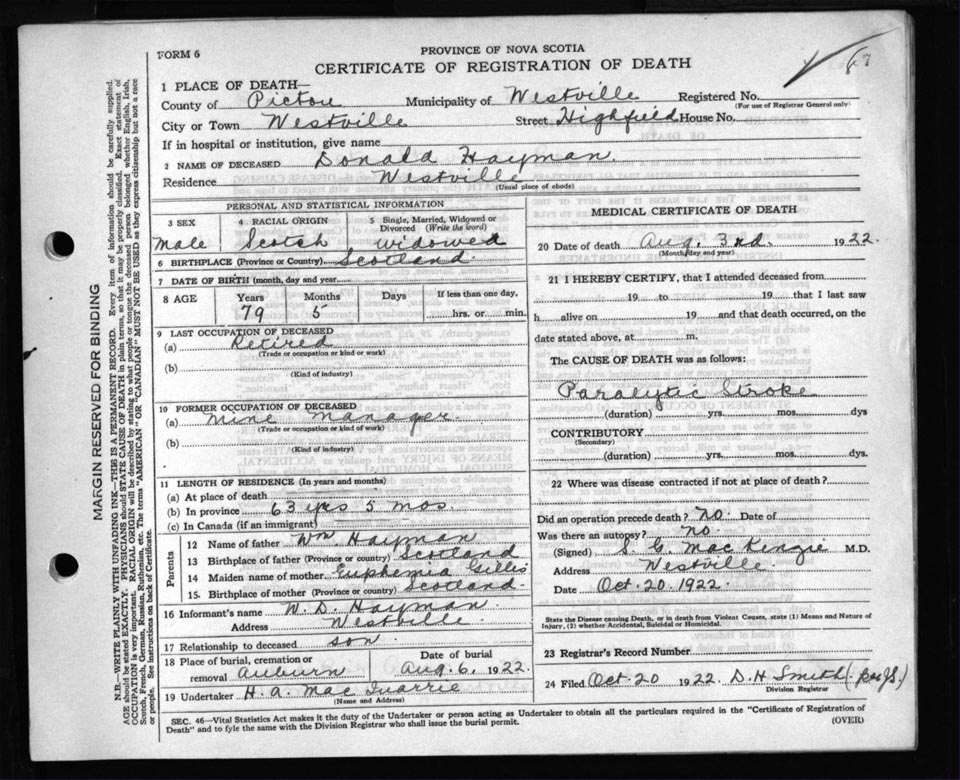 PROVINCE OF NOVA SCOTIA
CERTIFICATE OF REGISTRATION OF DEATH
FORM 6
67
1 PLACE OF DEATH—
County of Pictou Municipality of Westville Registered No.
(For use of Registrar General only)
City or Town Westville Street Highfield House No.
If in hospital or institution, give name
2 NAME OF DECEASED Donald Hayman.
Residence Westville
(Usual place of abode)
MARGIN RESERVED FOR BINDING
N.B.—WRITE PLAINLY WITH UNFADING INK—THIS IS A PERMANENT RECORD. Every item of information should be carefully supplied.
AGE should be stated EXACTLY. PHYSICIANS should STATE CAUSE OF DEATH in plain terms, so that it may be properly classified. Exact statement of
OCCUPATION is very important. RACIAL ORIGIN will be described by stating to what people or tongue the deceased person belonged whether English, Irish,
Scotch, French, German, Russian, Ruthenian, etc. The terms "AMERICAN" OR "CANADIAN" MUST NOT BE USED as they express citizenship but not a race
or people. See instructions on back of Certificate.
PERSONAL AND STATISTICAL INFORMATION
3 SEX 4 RACIAL ORIGIN 5 Single, Married, Widowed or Divorced (Write the word)
Male Scotch Widowed
6 BIRTHPLACE (Province or Country) Scotland.
7 DATE OF BIRTH (month, day and year)
8 AGE Years Months Days If less than one day,
79 5 hrs. or min.
9 LAST OCCUPATION OF DECEASED
(a) Retired
(Trade or occupation or kind or work)
(b)
(Kind of industry)
10 FORMER OCCUPATION OF DECEASED
(a) Mine Manager.
(Trade or occupation or kind of work)
(b)
(Kind of industry)
11 LENGTH OF RESIDENCE (In years and months)
(a) At place of death
(b) In province 63 yrs 5 mos.
(c) In Canada (if an immigrant)
Parents
12 Name of father Wm. Hayman
13 Birthplace of father (Province or country) Scotland
14 Maiden name of mother Euphemia Gillis
15. Birthplace of mother (Province or country) Scotland.
16 Informant's name W. D. Hayman
Address Westville.
17 Relationship to deceased son.
18 Place of burial, cremation or removal Auburn Date of burial Aug. 6. 1922.
19 Undertaker H. A. Mac Quarrie
(Name and Address)
MEDICAL CERTIFICATE OF DEATH
20 Date of death Aug. 3rd. 1922.
(Month, day and year)
21 I HEREBY CERTIFY, that I attended deceased from
19 to 19 that I last saw
h alive on 19 and that death occurred, on the
date stated above, at m.
The CAUSE OF DEATH was as follows:
Paralytic Stroke
(duration) yrs. mos. dys
CONTRIBUTORY
(Secondary)
(duration) yrs. mos. dys.
22 Where was disease contracted if not at place of death?
Did an operation precede death? No. Date of
Was there an autopsy? No.
(Signed) S. G. Mac Kenzie M.D.
Address Westville.
Date Oct. 20. 1922.
State the Disease causing Death, or in death from Violent Causes, state (1) Means and Nature of
Injury, (2) whether Accidental, Suicidal or Homicidal.
23 Registrar's Record Number
24 Filed Oct. 20 1922. D. H. Smith
Division Registrar
SEC. 46—Vital Statistics Act makes it the duty of the Undertaker or person acting as Undertaker to obtain all the particulars required in the "Certificate of Registration of
Death" and to fyle the same with the Division Registrar who shall issue the burial permit.
(OVER)